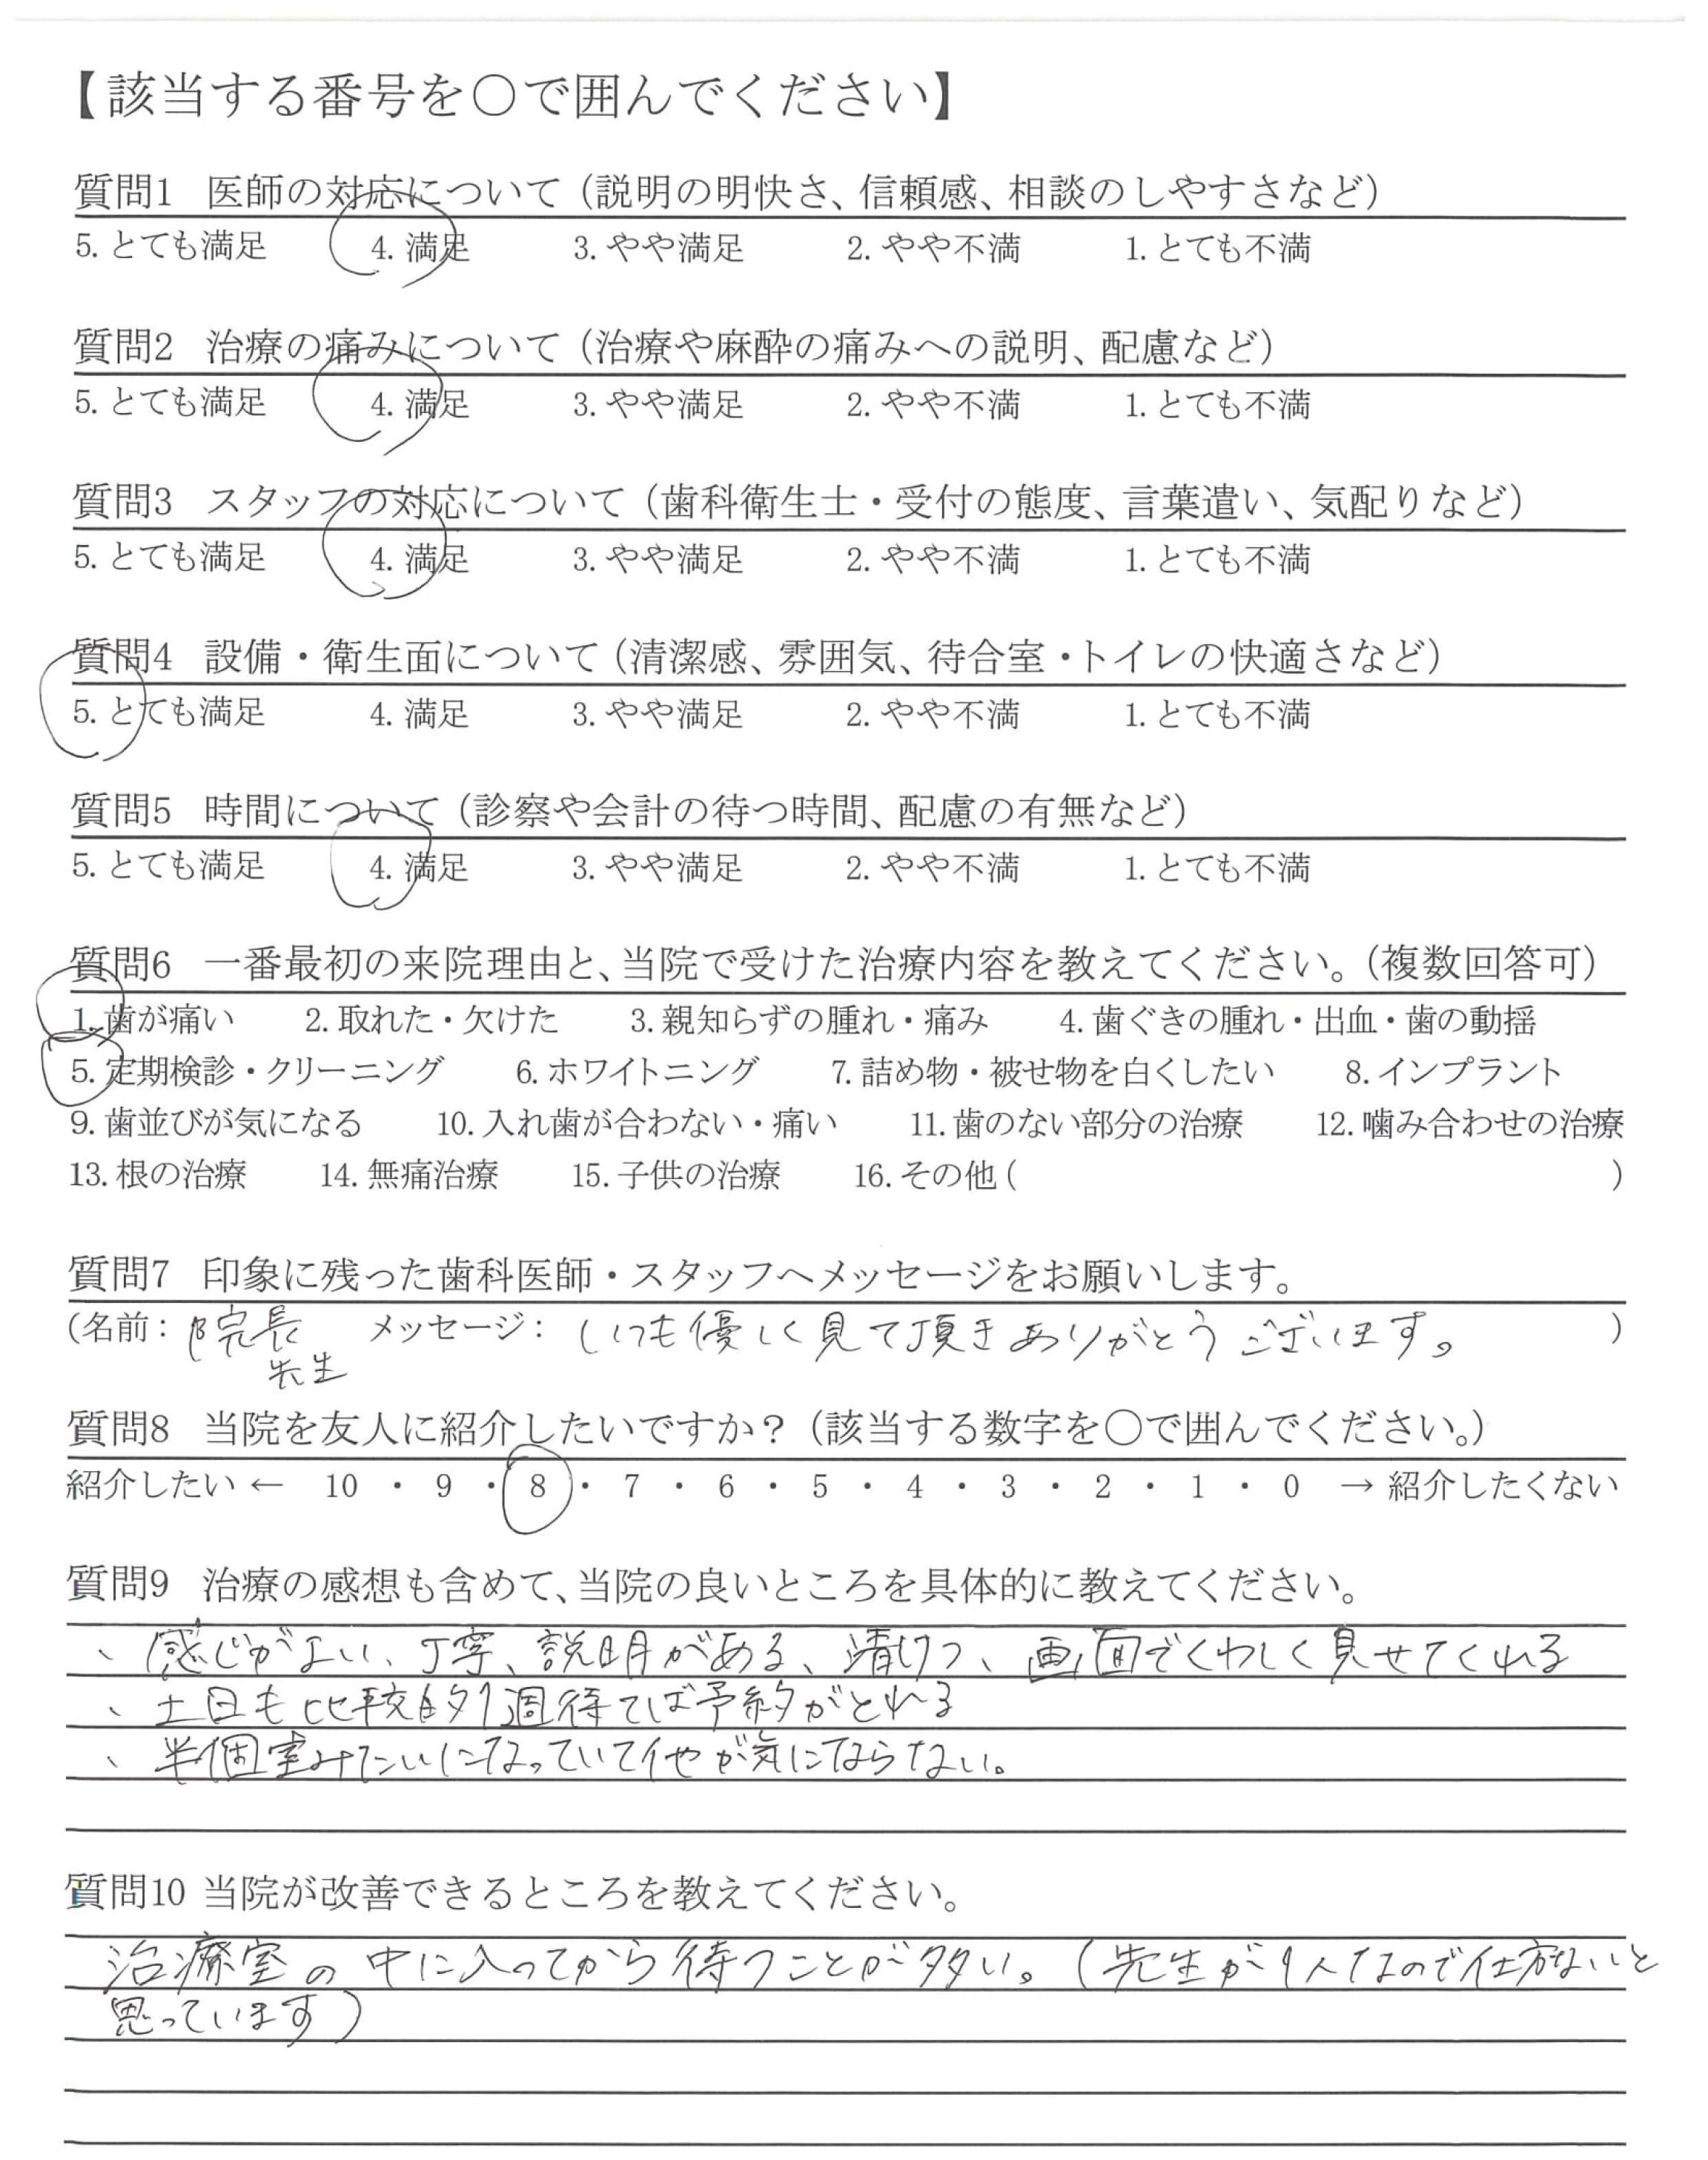 【該当する番号を〇で囲んでください】
質問1 医師の対応について（説明の明快さ、信頼感、相談のしやすさなど）
5. とても満足 4. 満足 3. やや満足 2. やや不満 1. とても不満
質問2 治療の痛みについて（治療や麻酔の痛みへの説明、配慮など）
5. とても満足 4. 満足 3. やや満足 2. やや不満 1. とても不満
質問3 スタッフの対応について（歯科衛生士・受付の態度、言葉遣い、気配りなど）
5. とても満足 4. 満足 3. やや満足 2. やや不満 1. とても不満
質問4 設備・衛生面について（清潔感、雰囲気、待合室・トイレの快適さなど）
5. とても満足 4. 満足 3. やや満足 2. やや不満 1. とても不満
質問5 時間について（診察や会計の待つ時間、配慮の有無など）
5. とても満足 4. 満足 3. やや満足 2. やや不満 1. とても不満
質問6 一番最初の来院理由と、当院で受けた治療内容を教えてください。（複数回答可）
1. 歯が痛い 2. 取れた・欠けた 3. 親知らずの腫れ・痛み 4. 歯ぐきの腫れ・出血・歯の動揺
5. 定期検診・クリーニング 6. ホワイトニング 7. 詰め物・被せ物を白くしたい 8. インプラント
9. 歯並びが気になる 10. 入れ歯が合わない・痛い 11. 歯のない部分の治療 12. 噛み合わせの治療
13. 根の治療 14. 無痛治療 15. 子供の治療 16. その他（ ）
質問7 印象に残った歯科医師・スタッフへメッセージをお願いします。
（名前：院長 メッセージ：いつも優しく見て頂きありがとうございます。 ）
先生
質問8 当院を友人に紹介したいですか？（該当する数字を〇で囲んでください。）
紹介したい ← 10 ・ 9 ・ 8 ・ 7 ・ 6 ・ 5 ・ 4 ・ 3 ・ 2 ・ 1 ・ 0 → 紹介したくない
質問9 治療の感想も含めて、当院の良いところを具体的に教えてください。
、感じがよい、丁寧、説明がある、清けつ、画面でくわしく見せてくれる
、土日も比較的1週待てば予約がとれる
、半個室みたいになっていて他が気にならない。
質問10 当院が改善できるところを教えてください。
治療室の中に入ってから待つことが多い。（先生が1人なので仕方ないと
思っています）